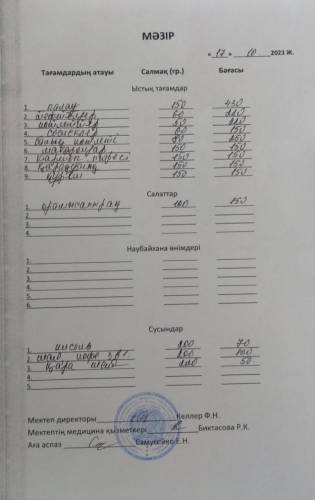 МӘЗІР
« 17 » 10 2023 Ж.
Тағамдардың атауы Салмақ (гр.) Бағасы
Ыстық тағамдар
1. палау 150 430
2. 60 220
3. 50 220
4. 60 150
5. 80 250
6. макарондар 150 150
7. картоп пюресі 150 150
8. 150 150
9. күріш 150 150
Салаттар
1. 100 150
2.
3.
4.
Наубайхана өнімдері
1.
2.
3.
4.
5.
6.
Сусындар
1. кисель 200 70
2. 200 100
3. қара шай 200 50
4.
5.
Мектеп директоры Келлер Ф.Н.
Мектептің медицина қызметкері Биктасова Р.К.
Аға аспаз Самусейко Е.Н.